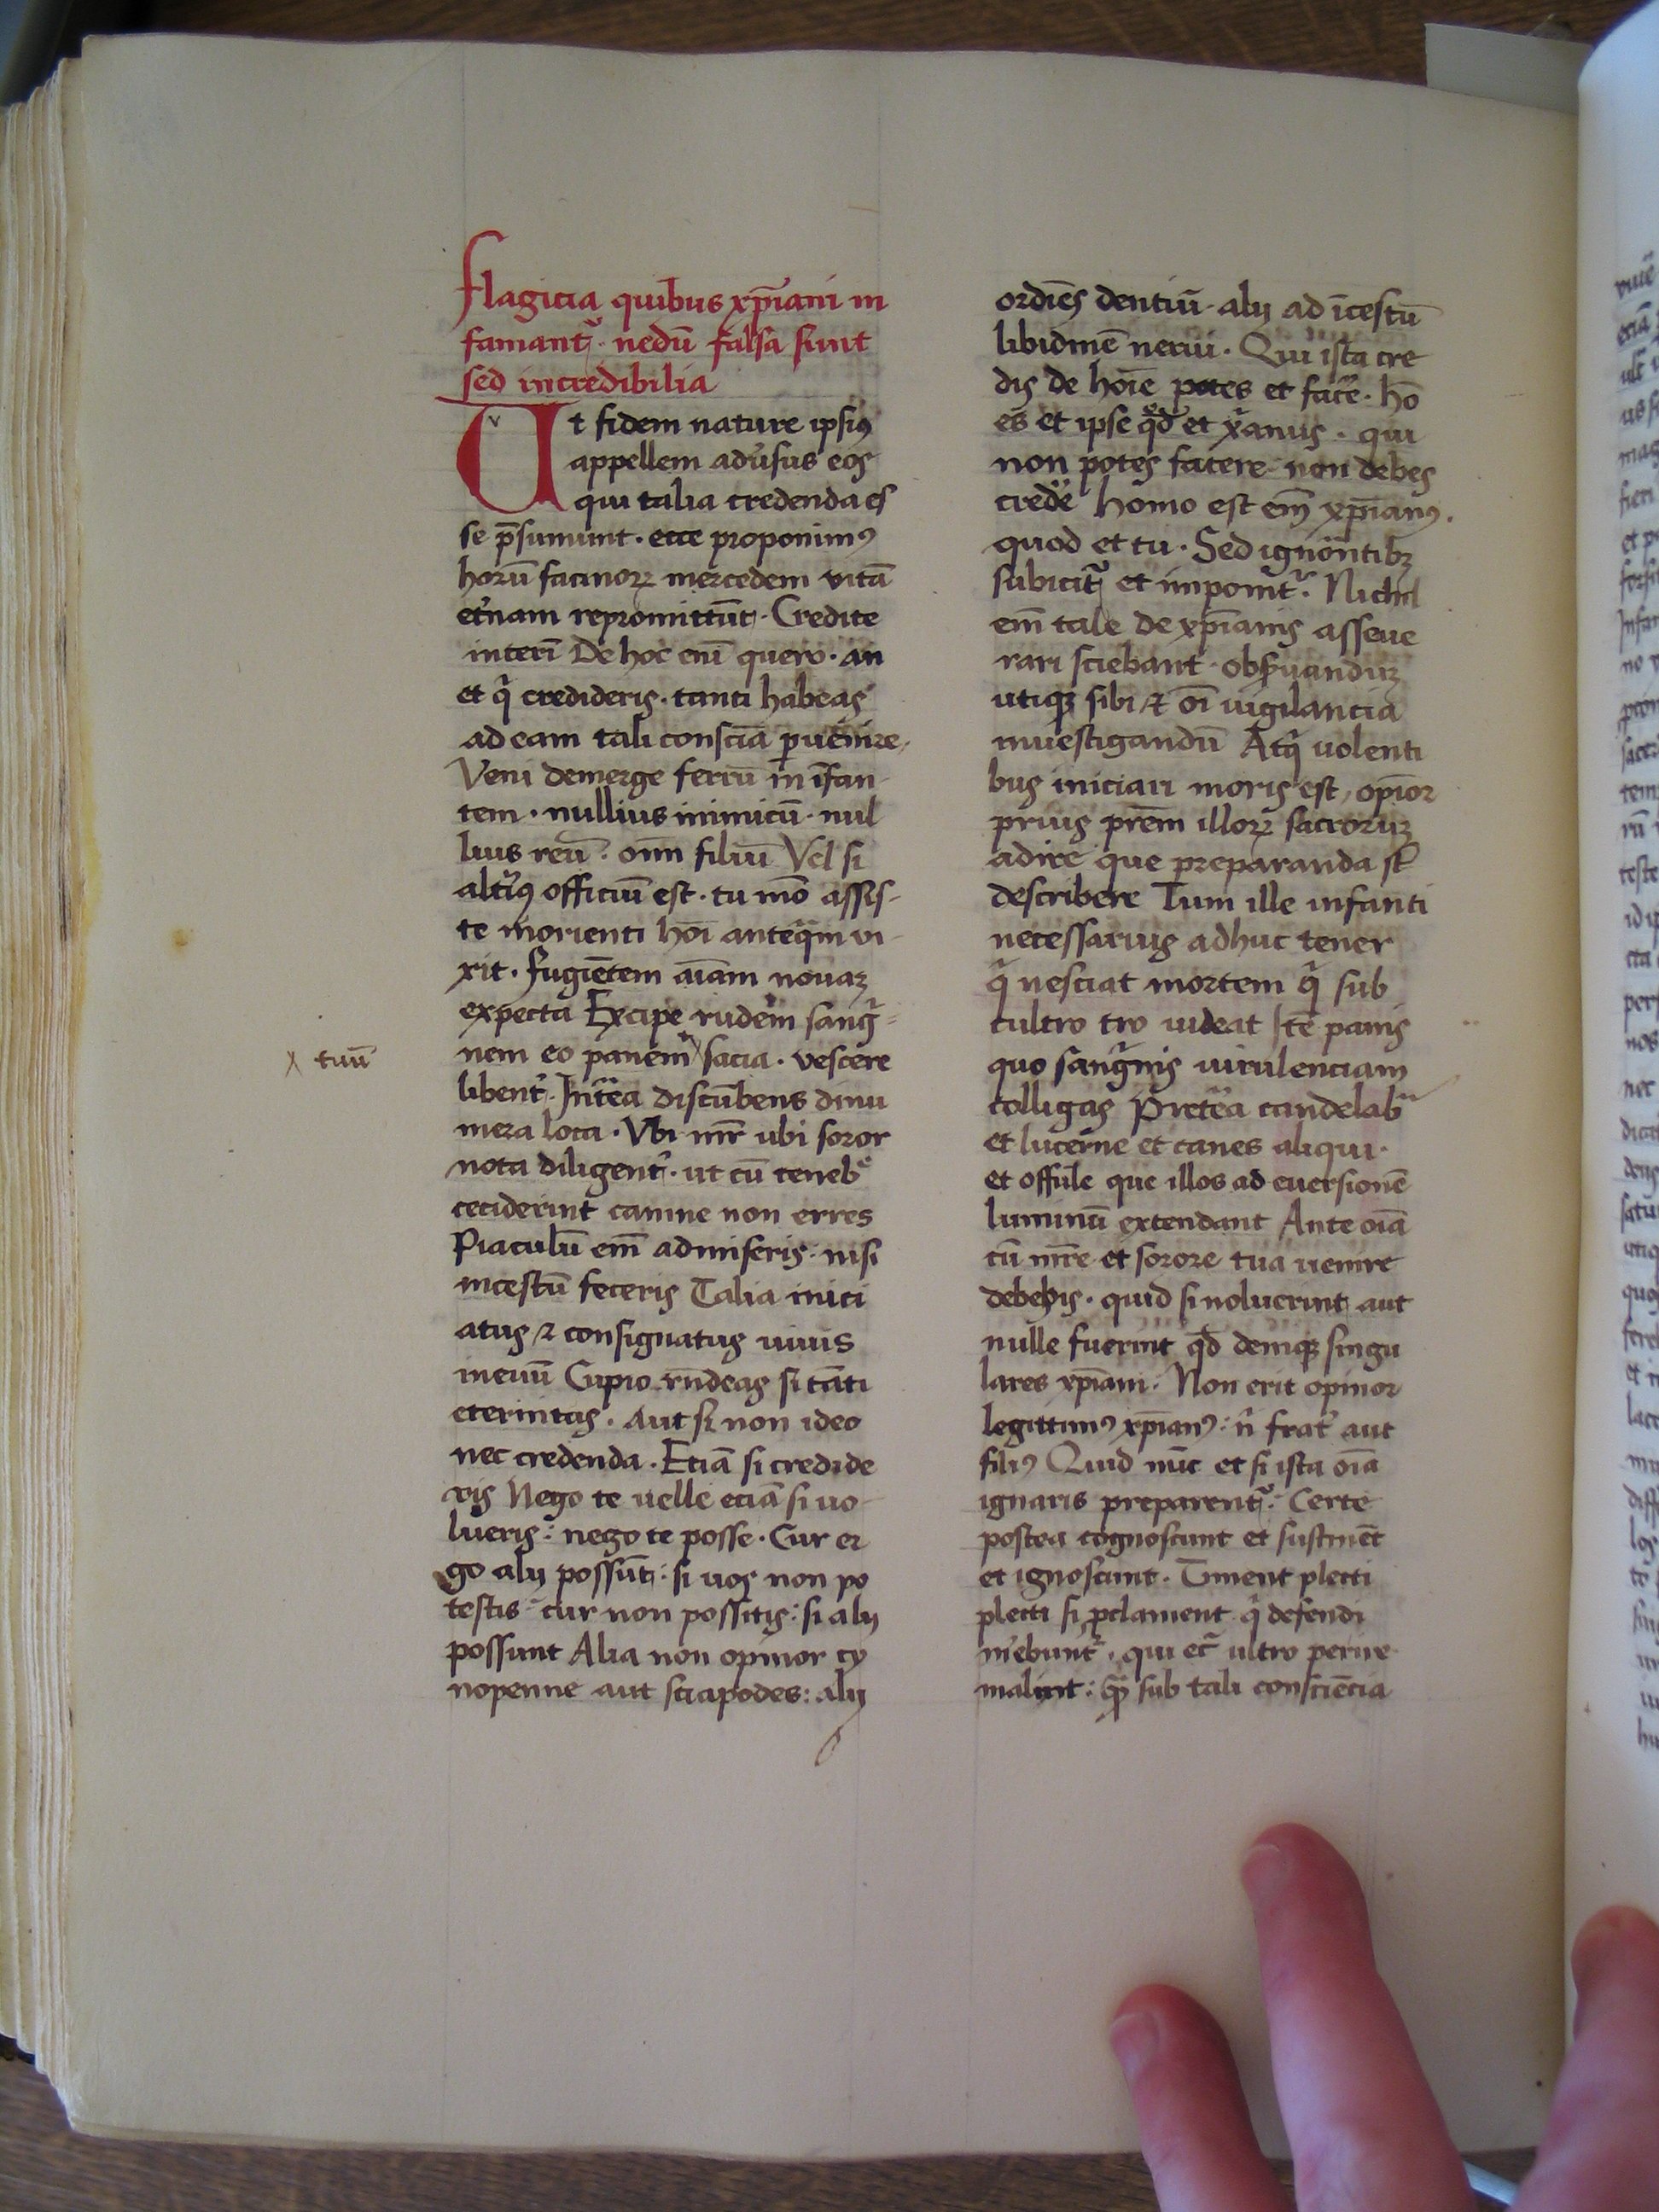 flagicia quibus xp̄iani in
famant᷑ · nedū falsa sunt
sed incredibilia
Ut fidem nature ipsiꝰ
appellem adũsus eos
qui talia credenda es
se p̄sumunt · ecce proponimꝰ
horū facinorꝝ mercedem vitā
et̉nam repromittūt · Credite
interī De hoc enī quero · an
et q̇ credideris · tanti habeas
ad eam tali consciā ꝑuenire ,
Veni demerge ferrū in īfan-
tem · nullius inimicū · nul
lius reū · oīm filiū Vel si
alt̉iꝰ officiū est · tu mō assis-
te morienti hōi anteq̄m vi-
xit · fugiētem aīam nouaꝫ
expecta Excipe rudem sang̈-
nem eo panem sacia · vescere
x tuū
libent̉ · Int̉ea discūbens dinu
mera loca · Vbi mr̄ ubi soror
nota diligent̉ · ut cū teneb̾
ceciderint canine non erres
Piaculū em̄ admiseris · nisi
incestū feceris Talia inici
atus ⁊ consignatus uiuis
in euū Cupio rñdeas si tāti
eternitas · Aut si non ideo
nec credenda · Etiā si credide
ris Nego te uelle eciā si uo-
lueris : nego te posse · Cur er
go alij possūt : si uos non po
testis cur non possitis : si alij
possunt Alia non opinor cy
nopenne aut sciapodes : alij
ordiēs dentiū · alij ad īcestū
libidinē nerui · Qui ista cre
dis de hoīe potes et fac̉e · hō
es et ipse qd̉ et x̄anus · qui
non potes facere non debes
cred̉e homo est em̄ xp̄ianꝰ .
quod et tu · Sed ignōntibꝫ
subicit᷑ et imponit᷑ · Nichil
em̄ tale de xp̄ianis asseue
rari sciebant · obẜuanduꝫ
utiqꝫ sibi ⁊ oī uigilancia
inuestigandū Atq̇ uolenti
bus iniciari moris est , opīor
prius pr̄em illorꝝ sacroruꝫ
adire que preparanda st̄
describere Tum ille infanti
necessarius adhuc tener
q̇ nesciat mortem q̇ sub
cultro tro uideat Itē panis
quo sang̈nis uirulenciam
colligas Pret̉ea candelab̾
et lucerne et canes aliqui ·
et offule que illos ad euersionē
luminū extendant Ante oīa
cū mr̄e et sorore tua uenire
debebis · quid si noluerint aut
nulle fuerint qd̄ deniqꝫ singu
lares xp̄iani · Non erit opinor
legittimꝰ xp̄ianꝰ : ñ frat̉ aut
filiꝰ Quid nūc et si ista oīa
ignaris preparent᷑ · Certe
postea cognoscunt et sustinēt
et ignoscunt · Timent plecti
plecti si ꝓclament q̇ defendi
m̉ebunt᷑ · qui ec̄ ultro perire
malint : qꝫ sub tali consciēcia